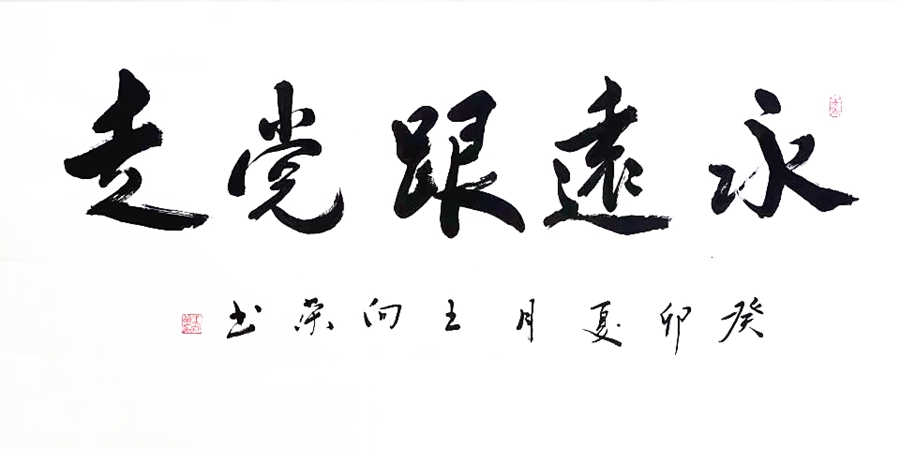 永遠跟党走
癸卯夏月王向荣书